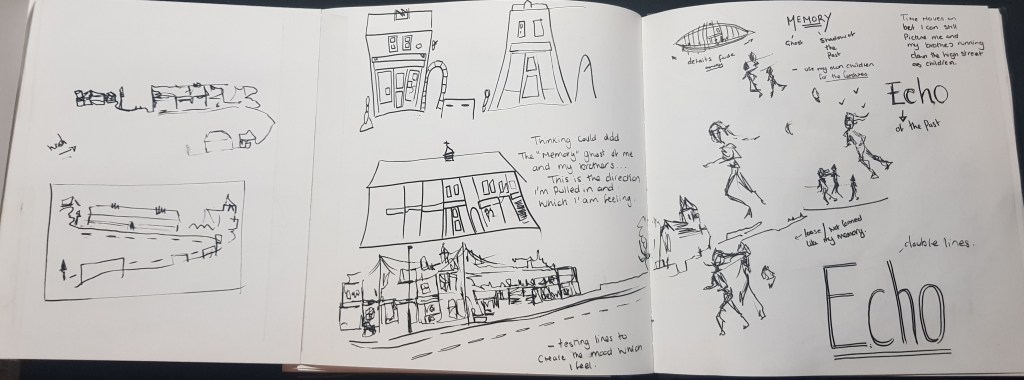 Thinking could add
The "Memory" ghost of me
and my brothers....
This is the direction
I'm pulled in and
which I'am feeling.
- testing lines to
create the mood which
I feel.
MEMORY
Ghost
Shadow of
the
Past
- use my own children
for the
details fade
away
Time moves on
but I can still
Picture me and
my brothers running
down the high street
as children.
Echo
of the Past
← loose / not formed
like my memory.
double lines.
Echo